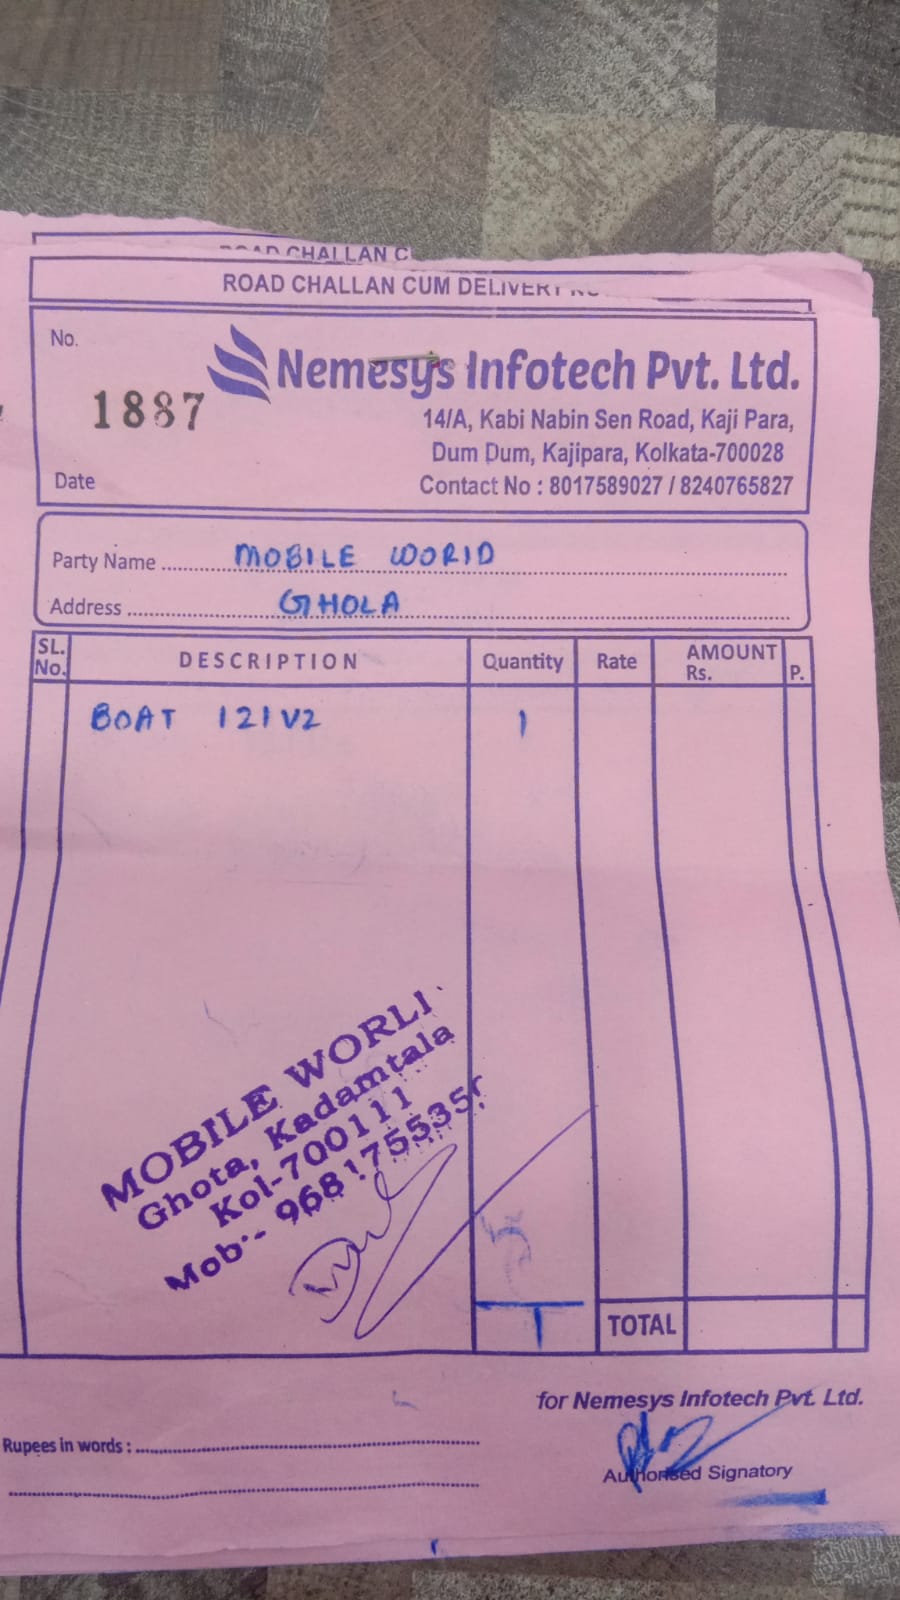 ROAD CHALLAN C
ROAD CHALLAN CUM DELIVERY
No.
1887
Nemesys Infotech Pvt. Ltd.
14/A, Kabi Nabin Sen Road, Kaji Para,
Dum Dum, Kajipara, Kolkata-700028
Date
Contact No : 8017589027 / 8240765827
Party Name MOBILE WORID
Address GHOLA
SL. No. DESCRIPTION Quantity Rate AMOUNT Rs. P.
BOAT 121V2 1
MOBILE WORLI
Ghota, Kadamtala
Kol-700111
Mob:-
1 TOTAL
for Nemesys Infotech Pvt. Ltd.
Rupees in words :
Authorised Signatory